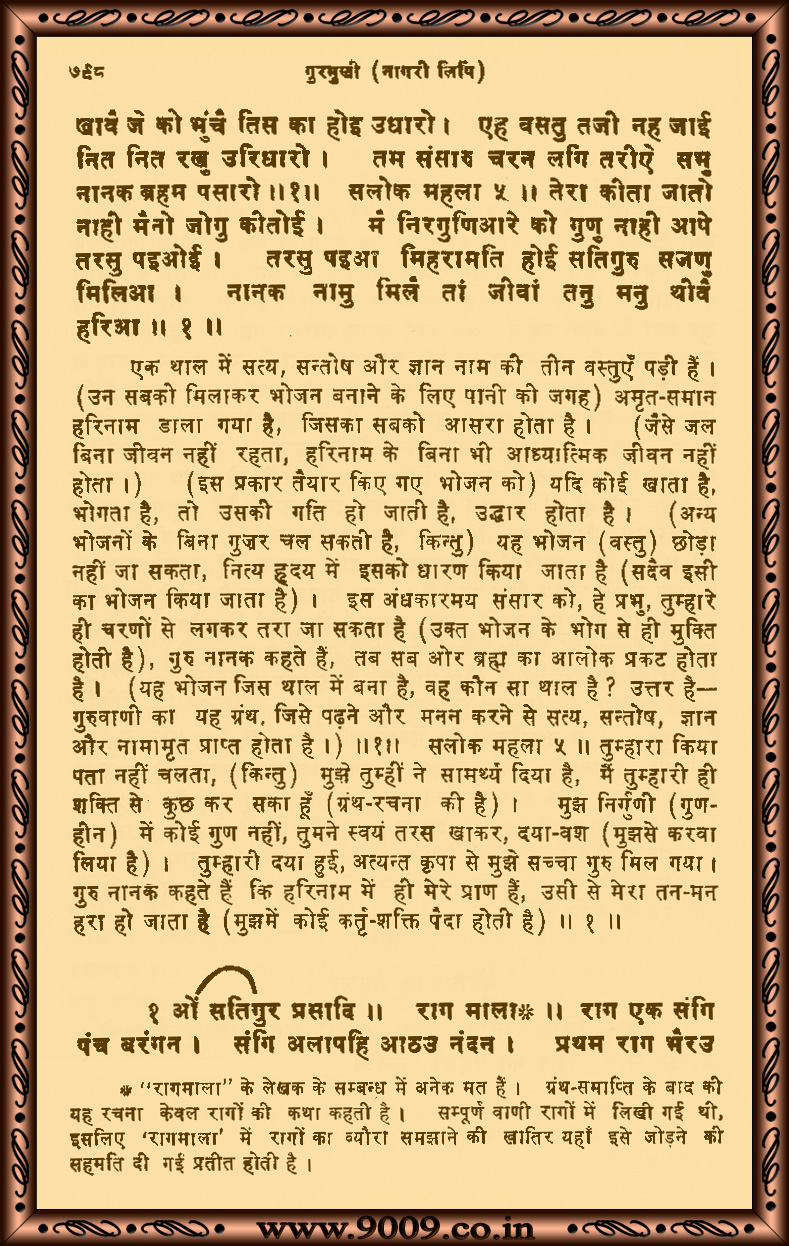 ७९८ गुरमुखी (नागरी लिपि)
खावै जे को भुंचै तिस का होइ उधारो। एह वसतु तजी नह जाई
नित नित रखु उरिधारो। तम संसारु चरन लगि तरीऐ सभु
नानक ब्रहम पसारो॥१॥ सलोक महला ५॥ तेरा कीता जातो
नाही मैनो जोगु कीतोई। मै निरगुणिआरे को गुणु नाही आपे
तरसु पइओई। तरसु पइआ मिहरामति होई सतिगुरु सजणु
मिलिआ। नानक नामु मिलै तां जीवां तनु मनु थीवै
हरिआ॥ १ ॥
एक थाल में सत्य, सन्तोष और ज्ञान नाम की तीन वस्तुएँ पड़ी हैं।
(उन सबको मिलाकर भोजन बनाने के लिए पानी की जगह) अमृत-समान
हरिनाम डाला गया है, जिसका सबको आसरा होता है। (जैसे जल
बिना जीवन नहीं रहता, हरिनाम के बिना भी आध्यात्मिक जीवन नहीं
होता।) (इस प्रकार तैयार किए गए भोजन को) यदि कोई खाता है,
भोगता है, तो उसकी गति हो जाती है, उद्धार होता है। (अन्य
भोजनों के बिना गुज़र चल सकती है, किन्तु) यह भोजन (वस्तु) छोड़ा
नहीं जा सकता, नित्य हृदय में इसको धारण किया जाता है (सदैव इसी
का भोजन किया जाता है)। इस अंधकारमय संसार को, हे प्रभु, तुम्हारे
ही चरणों से लगकर तरा जा सकता है (उक्त भोजन के भोग से ही मुक्ति
होती है), गुरु नानक कहते हैं, तब सब ओर ब्रह्म का आलोक प्रकट होता
है। (यह भोजन जिस थाल में बना है, वह कौन सा थाल है? उत्तर है—
गुरुवाणी का यह ग्रंथ, जिसे पढ़ने और मनन करने से सत्य, सन्तोष, ज्ञान
और नामामृत प्राप्त होता है।)॥१॥ सलोक महला ५॥ तुम्हारा किया
पता नहीं चलता, (किन्तु) मुझे तुम्हीं ने सामर्थ्य दिया है, मैं तुम्हारी ही
शक्ति से कुछ कर सका हूँ (ग्रंथ-रचना की है)। मुझ निर्गुणी (गुण-
हीन) में कोई गुण नहीं, तुमने स्वयं तरस खाकर, दया-वश (मुझसे करवा
लिया है)। तुम्हारी दया हुई, अत्यन्त कृपा से मुझे सच्चा गुरु मिल गया।
गुरु नानक कहते हैं कि हरिनाम में ही मेरे प्राण हैं, उसी से मेरा तन-मन
हरा हो जाता है (मुझमें कोई कर्तृ-शक्ति पैदा होती है)॥ १ ॥
१ ओं सतिगुर प्रसादि॥ राग माला*॥ राग एक संगि
पंच बरंगन। संगि अलापहि आठउ नंदन। प्रथम राग भैरउ
* "रागमाला" के लेखक के सम्बन्ध में अनेक मत हैं। ग्रंथ-समाप्ति के बाद की
यह रचना केवल रागों की कथा कहती है। सम्पूर्ण वाणी रागों में लिखी गई थी,
इसलिए 'रागमाला' में रागों का ब्यौरा समझाने की खातिर यहाँ इसे जोड़ने की
सहमति दी गई प्रतीत होती है।
www.9009.co.in